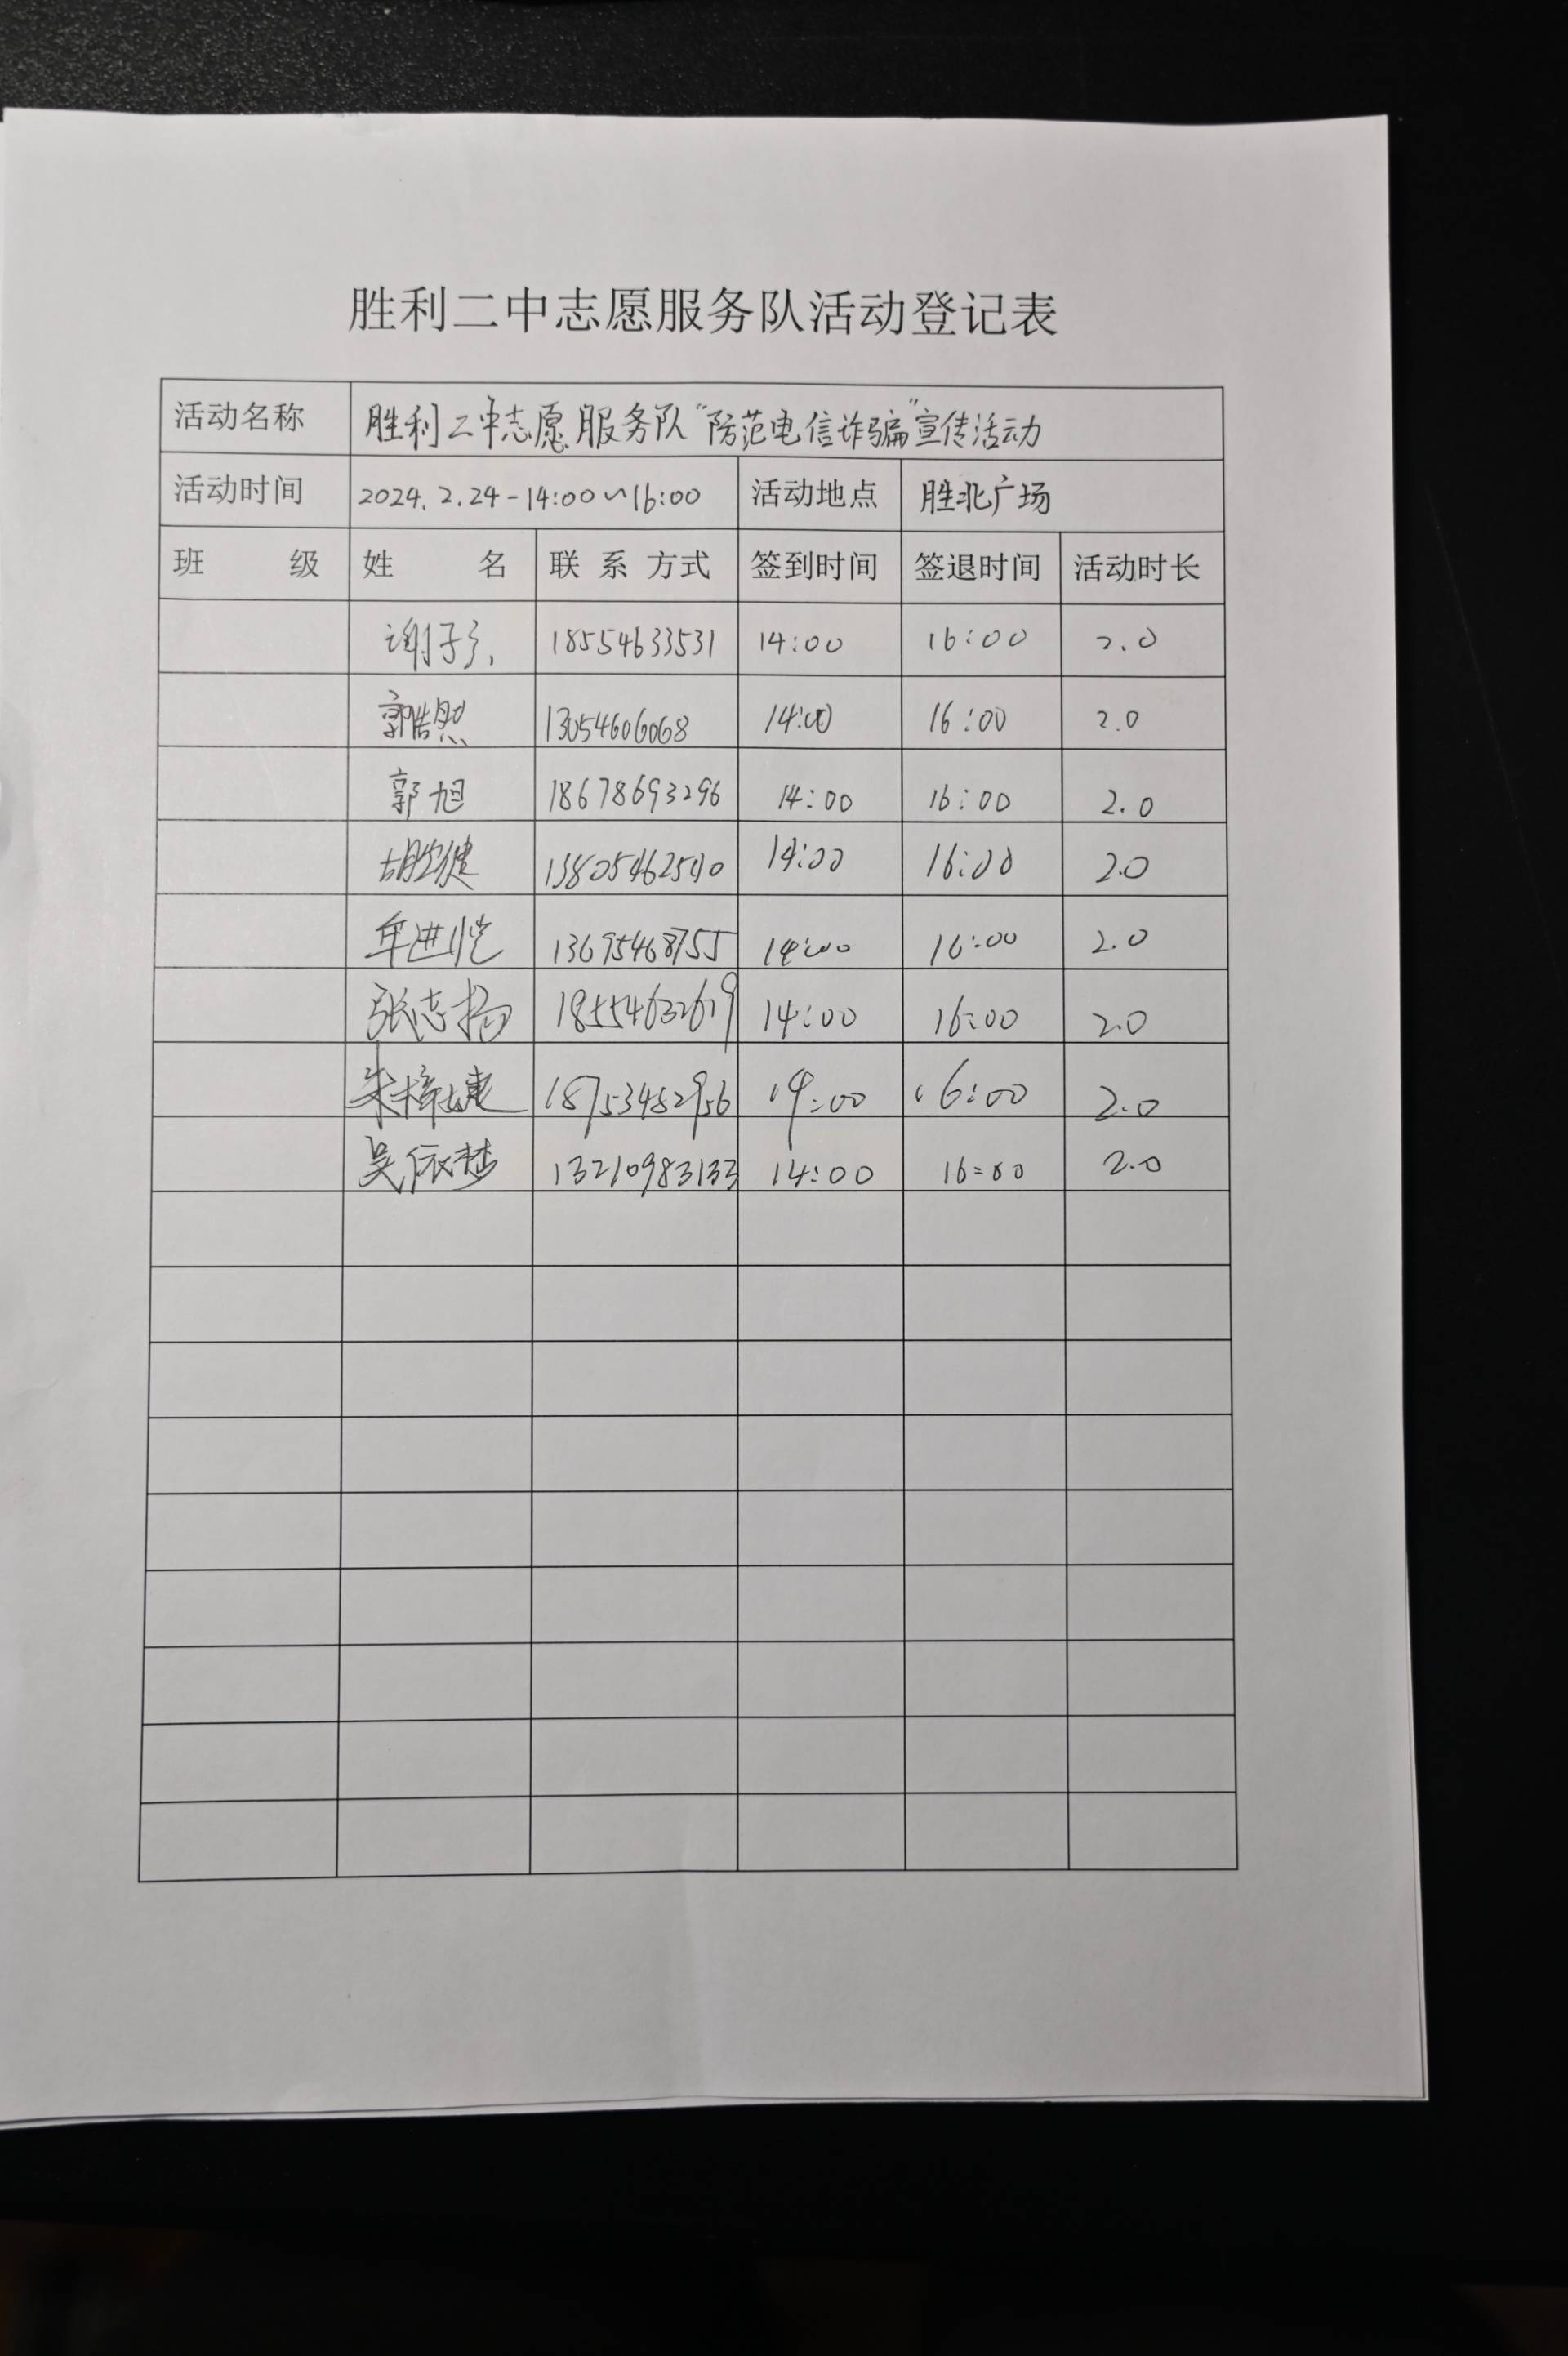 胜利二中志愿服务队活动登记表
活动名称 胜利二中志愿服务队“防范电信诈骗”宣传活动
活动时间 2024.2.24-14:00~16:00 活动地点 胜北广场
班 级 姓 名 联 系 方式 签到时间 签退时间 活动时长
谢子 18554633531 14:00 16:00 2.0
郭浩然 13054606068 14:00 16:00 2.0
郭旭 18678693296 14:00 16:00 2.0
胡健 14:00 16:00 2.0
牟进恺 13695468755 14:00 16:00 2.0
张志扬 18554632619 14:00 16:00 2.0
朱梓婕 18753482956 14:00 16:00 2.0
吴依梦 13210983133 14:00 16:00 2.0